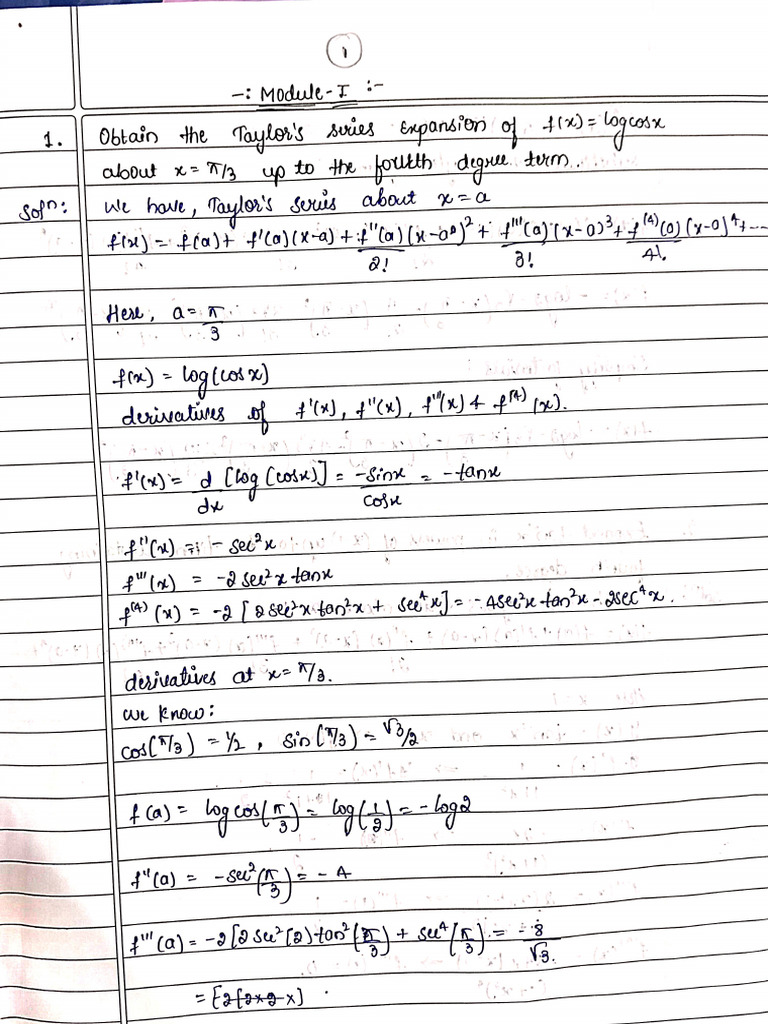 1
-: Module-I :-
1. Obtain the Taylor's series expansion of f(x) = log cosx
about x = π/3 up to the fourth degree term.
Solⁿ: We have, Taylor's series about x=a
f(x) = f(a) + f'(a)(x-a) + f''(a)(x-0)²/2! + f'''(a)(x-0)³/3! + f⁽⁴⁾(0)(x-0)⁴/4! + ...
Here, a = π/3
f(x) = log(cosx)
derivatives of f'(x), f''(x), f'''(x) & f⁽⁴⁾(x).
f'(x) = d/dx [log(cosx)] = -sinx/cosx = -tanx
f''(x) = - sec²x
f'''(x) = -2 sec²x tanx
f⁽⁴⁾(x) = -2 [2sec²x tan²x + sec⁴x] = -4sec²x tan²x - 2sec⁴x.
derivatives at x = π/3.
We know:
cos(π/3) = 1/2, sin(π/3) = √3/2
f(a) = log cos(π/3) = log(1/2) = -log2
f''(a) = -sec²(π/3) = -4
f'''(a) = -2[2sec²(2)tan²(π/3) + sec⁴(π/3) = -8/√3.
= [2[2×2 x]